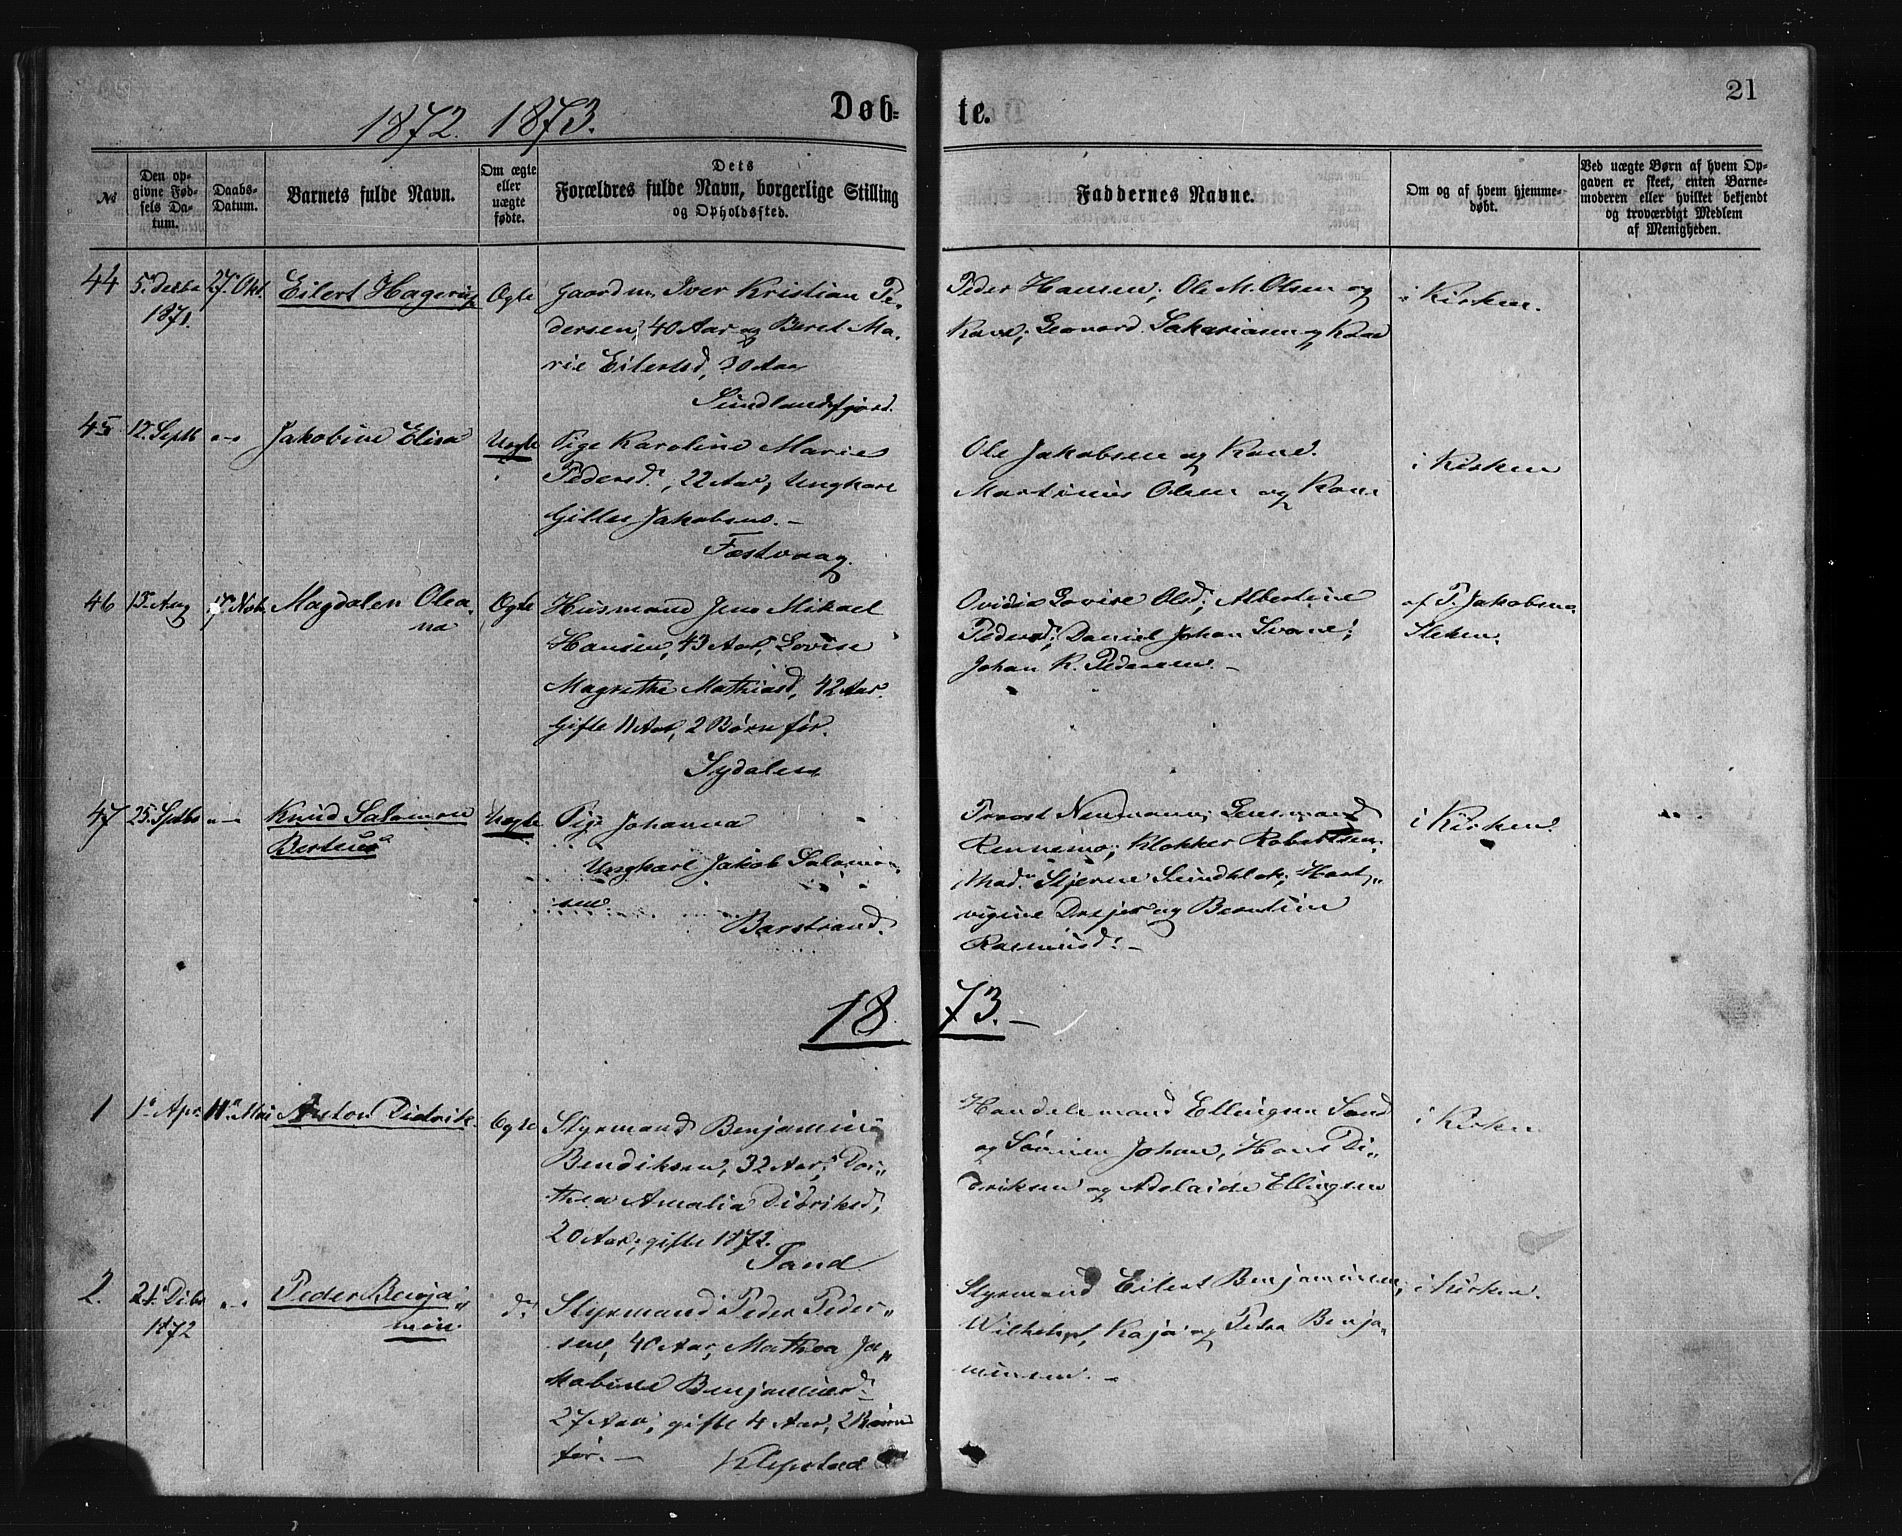 21
1872. 1873.
Døb-
te.
№
Den op-
givne Fød-
sels Da-
tum.
Daabs-
Datum.
Barnets fulde Navn.
Om ægte
eller
uægte
fødte.
Dets
Forældres fulde Navn, borgerlige Stilling
og Opholdssted.
Faddernes Navne.
Om og af hvem hjemme-
døbt.
Ved uægte Børn af hvem Op-
gaven er skeet, enten Barne-
moderen eller hvilket bekjendt
og troværdigt Medlem
af Menigheden.
44
1871.
27. Okt.
Eilert Hagerup
Ægte
Gaardm. Iver Kristian Pe-
dersen, 40 Aar og Beret Ma-
rie Eilertsd, 30 Aar
Sundlandsfjord.
Peder Hansen; Ole M. Olsen og
Kone; Leonard Sakariasen og Kone
i Kirken.
45
12. Septb
Jakobine Elisa
Uægte
Pige Karoline Marie
Pedersd., 22 Aar, Ungkarl
Gilles Jakobsen. -
Festvaag.
Ole Jakobsen og Kone.
Martinus Olsen og Kone
i Kirken
46
15 Aug
17 Nov
Magdalen Olea-
na
Ægte
Husmand Jens Mikael
Hansen, 43 Aar, Lovise
Magrethe Mathiasd, 42 Aar.
Gifte 11 Aar, 2 Børn før.
Sydalen
Ovidia Lovise Olsd; Albertine
Pedersd; Daniel Johan Svane;
Johan K. Pedersen. -
af P. Jakobsen
47
25. Septbr
Knud Salamon
Berteus
Uægte
Pige Johanna
Ungkarl Jakob Salamon-
sen
Barstrand.
Provst Neumann; Lensmand
Rennemo; Klokker Robertsen
Mad. Stjerne Sundklak; Hart-
vigine Dreyer og Berntine
Rasmusd. -
i Kirken.
1873. -
1
1 Apr.
11 Mai
Anton Didrik
Ægte
Styrmand Benjamin
Bendiksen, 32 Aar, Dor-
thea Amalia Didriksd,
20 Aar, gifte 1872.
Sand
Handelsmand Ellingsen Sand
og Sønnen Johan, Hans Di-
driksen og Adelaide Ellingsen
i Kirken
2.
21 Dcbr
1872
Peder Benja-
min
do
Styrmand Peder Peder-
sen, 40 Aar, Mathea Ja-
kobine Benjaminsd.
27 Aar, gifte 4 Aar, 2 Børn
før. -
Klepstad
Styrmand Eilert Benjaminsen,
Wilhelm, Kaja og Petra Benja-
minsen. -
i Kirken.